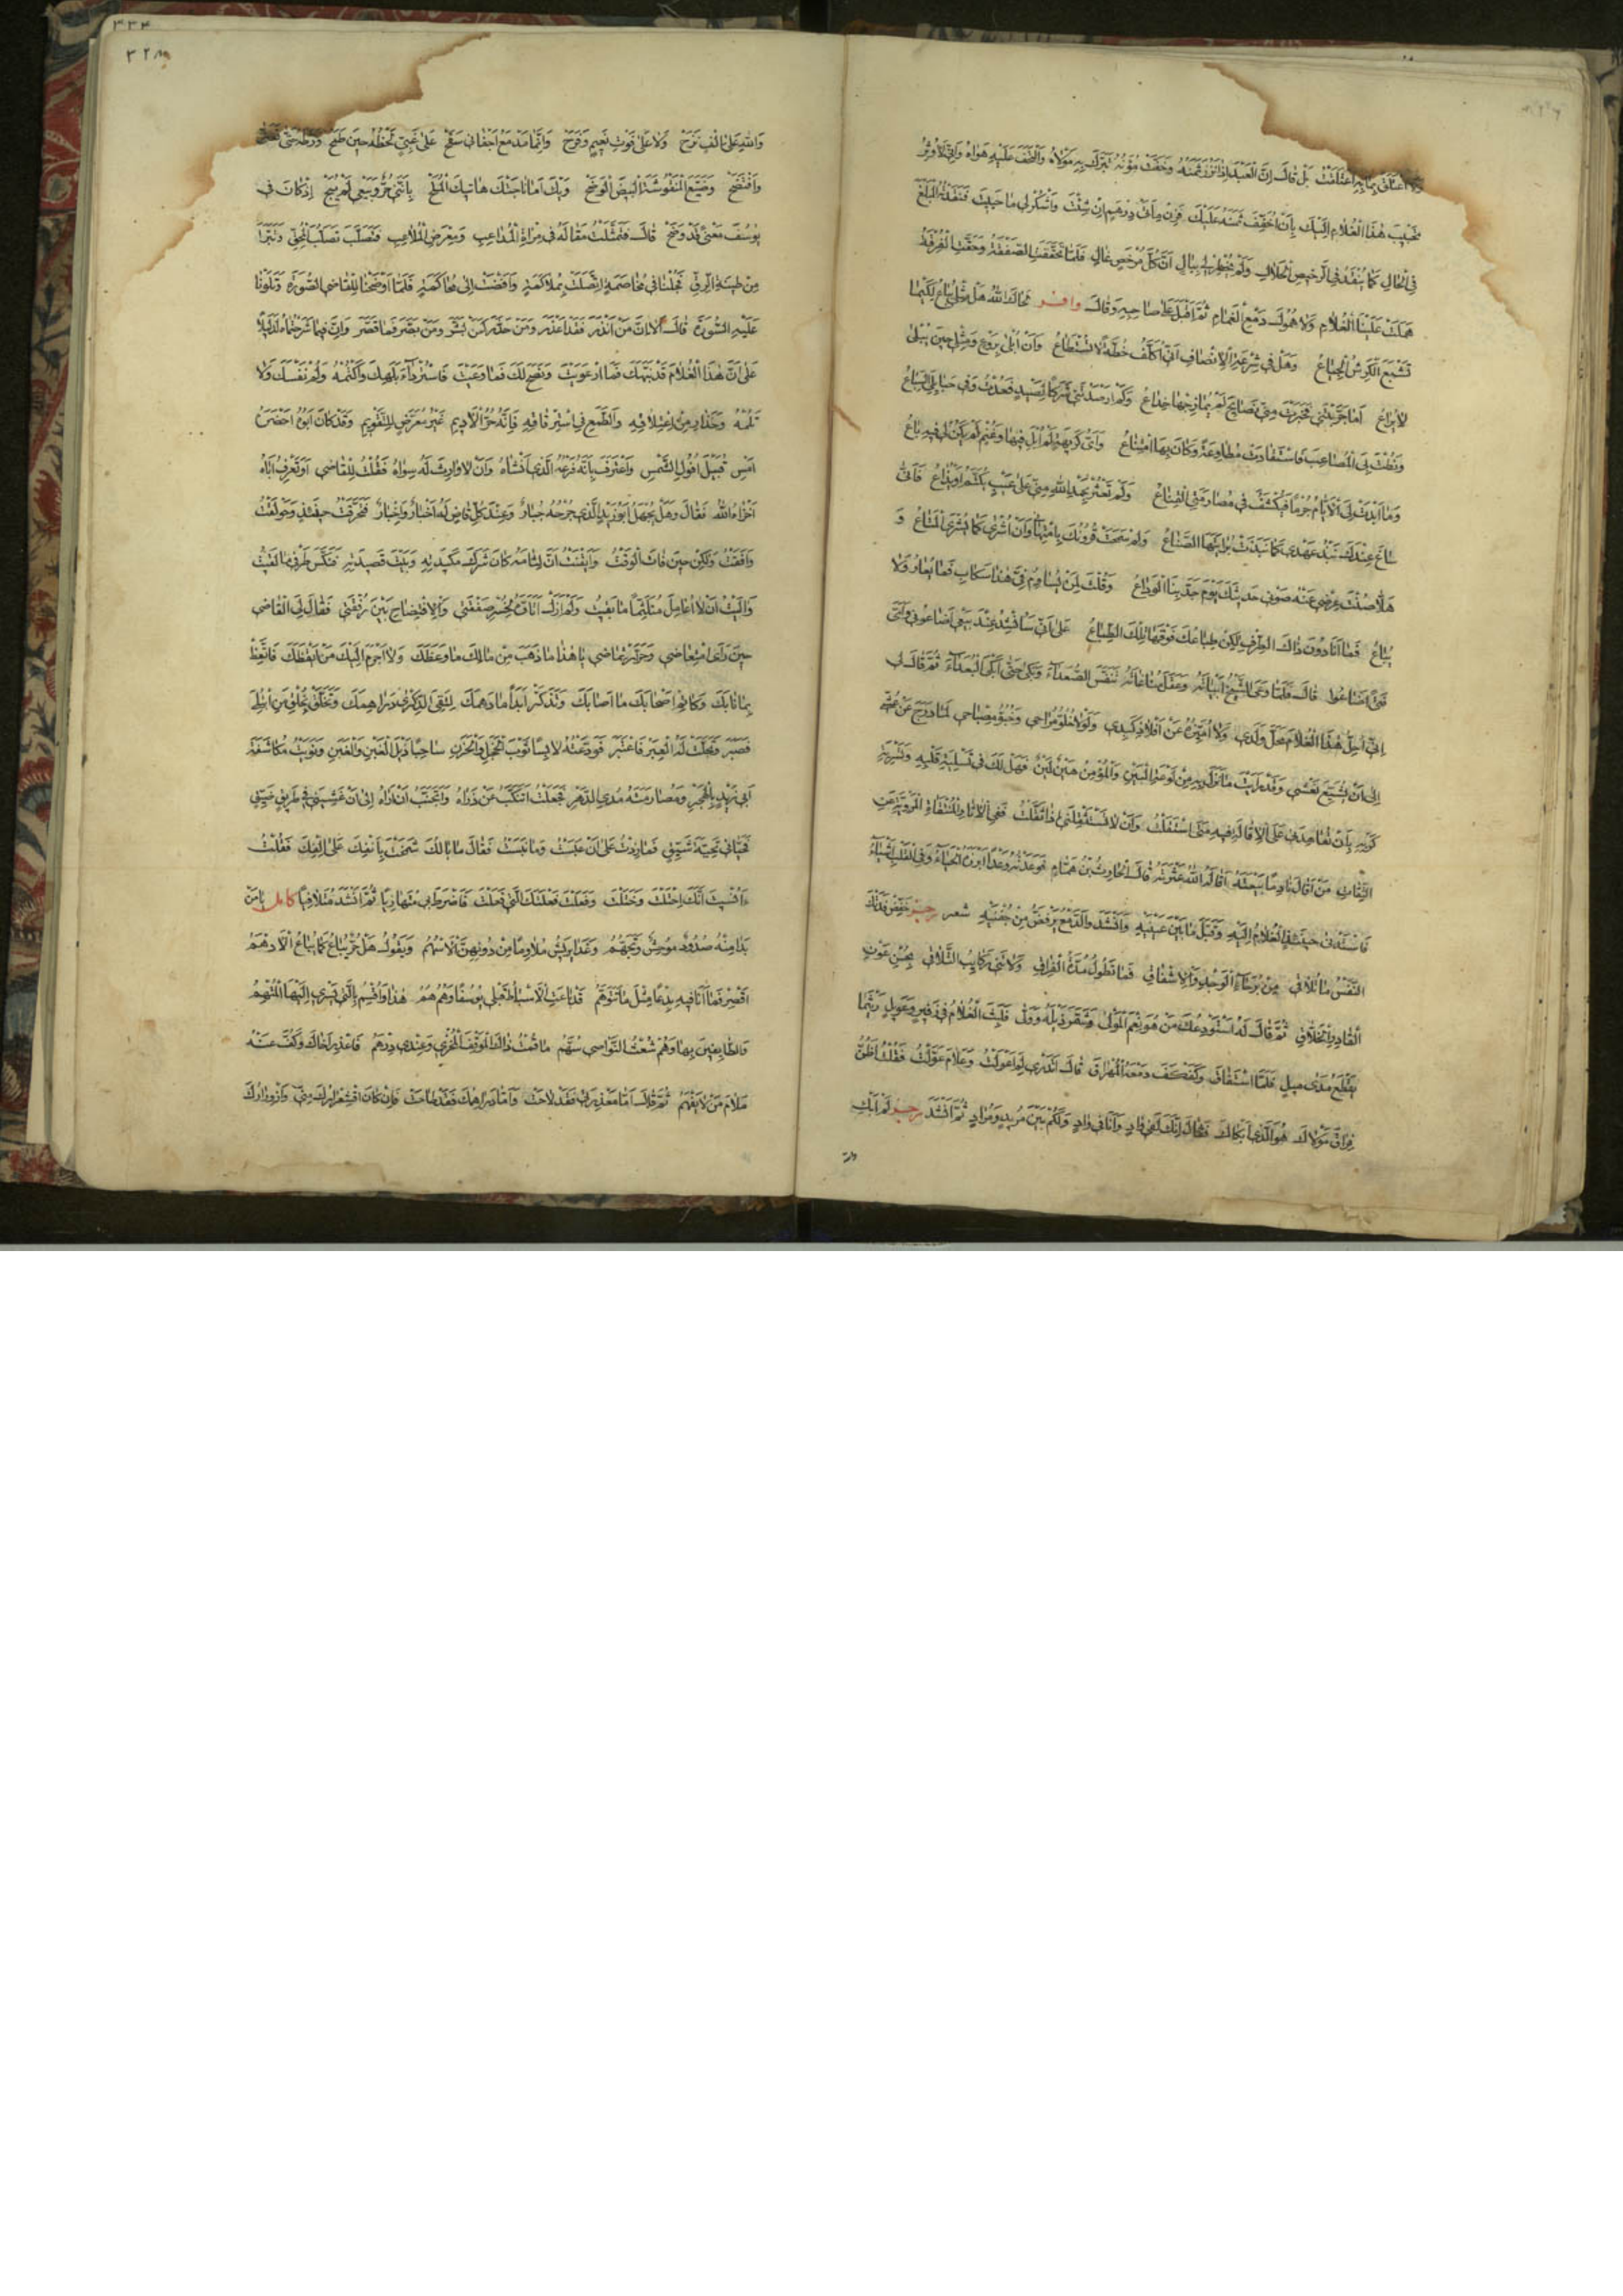 ولا اعتلق بما به اعتلقت بل قال ان العبد اذا نزر ثمنه وخفت مؤنه تبرك به مولاه والتحف عليه هواه واني لأوثر
تحبيب هذا الغلام اليك بان اخفف ثمنه عليك فزن مأتي درهم ان شئت واشكر لي ما حييت فنقدته المبلغ
في الحال كما ينقد في الرخيص الحلال ولم يخطر لي ببال ان كل مرخص غال فلما تحققت الصفقة وحقت الفرقة
هملت عينا الغلام ولا همول دمع الغمام ثم اقبل على صاحبه وقال وافر لحاك الله هل مثلي يباع لكيما
تشبع الكرش الجياع وهل في شرعة الانصاف اني اكلف خطة لا تستطاع وان ابلى بروع ومثلي حين يبلى
لا يراع اما جربتني فخبرت مني نصايح لم يمازجها خداع وكم ارصدتني شركا لصيد فعدت وفي حبايلي السباع
ونطت بي المصاعب فاستقادت مطاوعة وكان بها امتناع واي كريهة لم ابل فيها وغنم لم يكن لي فيه باع
وما ابدت لي الايام جرما فيكشف في مصارمتي القناع ولم تعثر بحمد الله مني على عيب يكتم او يذاع فانى
ساغ عندك نبذ عهدي كما نبذت برايتها الصناع ولم سمحت قرونك بامتهاني وان اشرى كما يشرى المتاع و
هلا صنت عرضي عنه صوني حديثك يوم جد بنا الوداع وقلت لمن يساوم في هذا سكاب فما يعار ولا
يباع فما انا دون ذاك الطرف لكن طباعك فوقها تلك الطباع على اني سانشد عند بيعي اضاعوني واي
فتى اضاعوا قال فلما وعى الشيخ ابياته وعقل مناغاته تنفس الصعداء وبكى حتى ابكى البعداء ثم قال لي
اني احل هذا الغلام محل ولدي ولا اميزه عن افلاذ كبدي ولولا خلو مراحي وخبو مصباحي لما درج عن عشي
الى ان يشيع نعشي وقد رأيت ما نزل به من لوعة البين والمؤمن هين لين فهل لك في تسلية قلبه وتسرية
كربه بان تعاهدني على الاقالة فيه متى استقلت وان لا تستثقلني اذا ثقلت ففي الاثار المنتقاة المروية عن
الثقات من اقال نادما بيعته اقاله الله عثرته قال الحارث بن همام فوعدته وعدا ابرزه الحياء وفي القلب اشياء
فاستدنى حينئذ الغلام اليه وقبل ما بين عينيه وانشد والدمع يرفض من جفنيه شعر رجز خفض فدتك
النفس ما تلاقي من برحاء الوجد والاشفاق فما تطول مدة الفراق ولا تني ركايب التلاقي بحسن عون
القادر الخلاق ثم قال له استودعك من هو نعم المولى وشمر ذيله وولى فلبث الغلام في زفير وعويل ريثما
يقطع مدى ميل فلما استفاق وكفكف دمعه المهراق قال اتدري لم اعولت وعلام عولت فقلت اظن
فراق مولاك هو الذي ابكاك فقال انك لفي واد وانا في واد ولكم بين مريد ومراد ثم انشد رجز لم ابك
۳۳۴
۳۲۸
والله على الف نزح ولا على فوت نعيم وفرح وانما مدمع اجفاني سفح على غبي لحظه حين طمح ورطه حتى تعنى
وافتضح وضيع المنقوشة البيض الوضح ويك اما ناجتك هاتيك الملح بانني حر وبيعي لم يبح اذ كان في
يوسف معنى قد وضح قال فتمثلت مقاله في مراة المداعب ومعرض الملاعب فتصلب تصلب المحق وتبرا
من طينة الرق فجلنا في مخاصمة اتصلت بملاكمة وافضت الى محاكمة فلما اوضحنا للقاضي الصورة وتلونا
عليه السورة قال الا ان من انذر فقد اعذر ومن حذر كمن بشر ومن بصر فما قصر وان فيما شرحتماه لدليلا
على ان هذا الغلام قد نبهك فما ارعويت ونصح لك فما وعيت فاستر داء بلهك واكتمه ولم نفسك ولا
تلمه وحذار من اعتلاقه والطمع في استرقاقه فانه حر الاديم غير معرض للتقويم وقد كان ابوه احضره
امس قبيل افول الشمس واعترف بانه فرعه الذي انشاه وان لا وارث له سواه فقلت للقاضي او تعرف اباه
اخزاه الله فقال وهل يجهل ابو زيد الذي جرحه جبار وعند كل قاض له اخبار واخبار فتحرقت حينئذ وحولقت
وافقت ولكن حين فات الوقت وايقنت ان لثامه كان شرك مكيدته وبيت قصيدته فنكس طرفي ما لقيت
واليت ان لا اعامل متلثما ما بقيت ولم ازل اتاوه لخسر صفقتي والافتضاح بين رفقتي فقال لي القاضي
حين رأى امتعاضي وحر ارتماضي يا هذا ما ذهب من مالك ما وعظك ولا اجرم اليك من ايقظك فاتعظ
بما نابك وكاتم اصحابك ما اصابك وتذكر ابدا ما دهمك لتقي الذكرى دراهمك وتخلق بخلق من ابتلي
فصبر وتجلت له العبر فاعتبر فودعته لابسا ثوب الخجل والحزن ساحبا ذيل الغبن والغبن ونويت مكاشفة
ابي زيد بالهجر ومصارمته مدى الدهر فجعلت اتنكب عن ذراه واتجنب ان اراه الى ان غشيني في طريق ضيق
فحياني تحية شيق فما زدت على ان عبست وما نبست فقال ما بالك شمخت بانفك على الفك فقلت
اأنسيت انك احتلت وختلت وفعلت فعلتك التي فعلت فاضرط بي متهازيا ثم انشد متلافيا كامل يا من
بدا منه صدود موحش وتجهم وغدا يريش ملاوما من دونهن الاسهم ويقول هل حر يباع كما يباع الادهم
اقصر فما انا فيه بدعا مثل ما تتوهم قد باعت الاسباط قبلي يوسفا وهم هم هذا واقسم بالتي يسري اليها المتهم
والطايفين بها وهم شعث النواصي سهم ما قمت ذاك الموقف المخزي وعندي درهم فاعذر اخاك وكف عنه
ملام من لا يفهم ثم قال اما معذرتي فقد لاحت واما دراهمك فقد طاحت فان كان اقشعرارك مني وازورارك